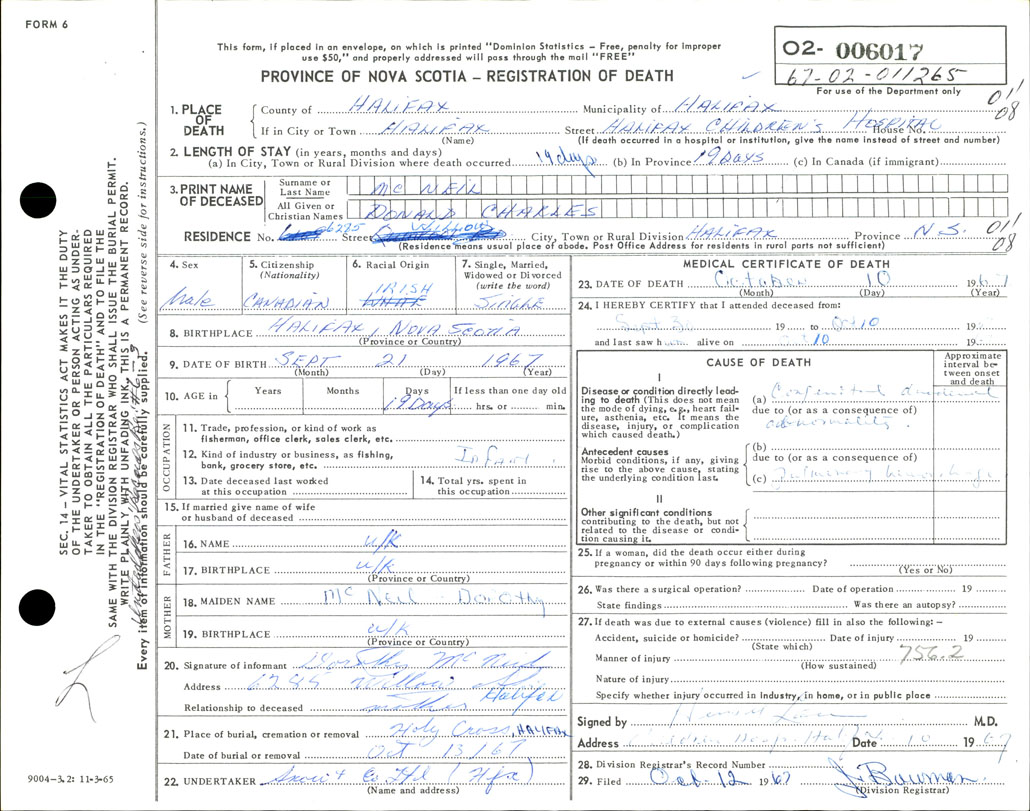 FORM 6
This form, if placed in an envelope, on which is printed "Dominion Statistics – Free, penalty for improper
use $50," and properly addressed will pass through the mail "FREE"
PROVINCE OF NOVA SCOTIA – REGISTRATION OF DEATH
02- 006017
67-02-011265
For use of the Department only
011
08
1. PLACE OF DEATH
County of HALIFAX Municipality of HALIFAX
If in City or Town HALIFAX Street HALIFAX CHILDREN'S HOSPITAL House No.
(Name) (If death occurred in a hospital or institution, give the name instead of street and number)
2. LENGTH OF STAY (in years, months and days)
(a) In City, Town or Rural Division where death occurred 19 days (b) In Province 19 DAYS (c) In Canada (if immigrant)
3. PRINT NAME OF DECEASED
Surname or Last Name MC NEIL
All Given or Christian Names DONALD CHARLES
RESIDENCE No. 6285 Street Willow City, Town or Rural Division HALIFAX Province N.S. 011
08
(Residence means usual place of abode. Post Office Address for residents in rural parts not sufficient)
4. Sex
Male
5. Citizenship
(Nationality)
CANADIAN
6. Racial Origin
IRISH
WHITE
7. Single, Married,
Widowed or Divorced
(write the word)
SINGLE
8. BIRTHPLACE HALIFAX, NOVA SCOTIA
(Province or Country)
9. DATE OF BIRTH SEPT 21 1967
(Month) (Day) (Year)
10. AGE in
Years Months Days If less than one day old
19 Days hrs. or min.
OCCUPATION
11. Trade, profession, or kind of work as
fisherman, office clerk, sales clerk, etc.
12. Kind of industry or business, as fishing,
bank, grocery store, etc. Infant
13. Date deceased last worked
at this occupation
14. Total yrs. spent in
this occupation
15. If married give name of wife
or husband of deceased
FATHER
16. NAME u/k
17. BIRTHPLACE u/k
(Province or Country)
MOTHER
18. MAIDEN NAME Mc Neil - Dorothy
19. BIRTHPLACE u/k
(Province or Country)
20. Signature of informant Dorothy McNeil
Address 6285 Willow St Halifax
Relationship to deceased mother
21. Place of burial, cremation or removal Holy Cross, HALIFAX
Date of burial or removal Oct 13/67
22. UNDERTAKER Snow & Co Ltd (Hfx)
(Name and address)
MEDICAL CERTIFICATE OF DEATH
23. DATE OF DEATH October 10 1967
(Month) (Day) (Year)
24. I HEREBY CERTIFY that I attended deceased from:
Sept 19 to Oct 10 19
and last saw him alive on 10 19
CAUSE OF DEATH
Approximate
interval between onset
and death
I
Disease or condition directly leading to death (This does not mean
the mode of dying, e.g., heart failure, asthenia, etc. It means the
disease, injury, or complication
which caused death.)
(a) Congenital duodenal
due to (or as a consequence of)
abnormality.
Antecedent causes
Morbid conditions, if any, giving
rise to the above cause, stating
the underlying condition last.
(b)
due to (or as a consequence of)
(c) Pulmonary hemorrhage
II
Other significant conditions
contributing to the death, but not
related to the disease or condition causing it.
25. If a woman, did the death occur either during
pregnancy or within 90 days following pregnancy?
(Yes or No)
26. Was there a surgical operation? Date of operation 19
State findings Was there an autopsy?
27. If death was due to external causes (violence) fill in also the following: –
Accident, suicide or homicide? Date of injury 19
(State which)
Manner of injury 756.2
(How sustained)
Nature of injury
Specify whether injury occurred in industry, in home, or in public place
Signed by M.D.
Address Children Hosp. Halifax 10 1967
28. Division Registrar's Record Number
29. Filed Oct. 12 1967 J. Bauman
(Division Registrar)
SEC. 14 – VITAL STATISTICS ACT MAKES IT THE DUTY
OF THE UNDERTAKER OR PERSON ACTING AS UNDERTAKER TO OBTAIN ALL THE PARTICULARS REQUIRED
IN THE "REGISTRATION OF DEATH" AND TO FILE THE
SAME WITH THE DIVISION REGISTRAR WHO SHALL ISSUE THE BURIAL PERMIT.
WRITE PLAINLY WITH UNFADING INK, THIS IS A PERMANENT RECORD.
Every item of information should be carefully supplied. (See reverse side for instructions.)
9004-3.2: 11-3-65